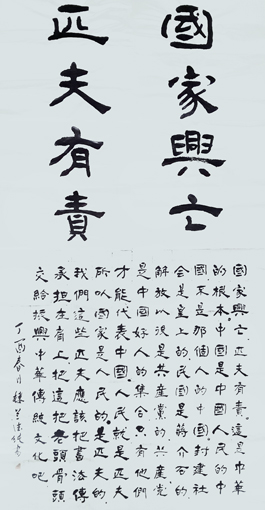 國家興亡
匹夫有責
國家興亡匹夫有責這是中華
的根本中國是中國人民的中
國不是那個人的中國封建社
会是皇上的民國是蔣介石的
解放以後是共産黨的共產党
是中國好人的集合只有他們
才能代表中國人民就是匹夫
所以國人民的是匹夫的
我們這些匹夫應該把書法傳
承担在肩上把這把老頭骨頭
交給振興中華傳統文化吧
丁酉春月